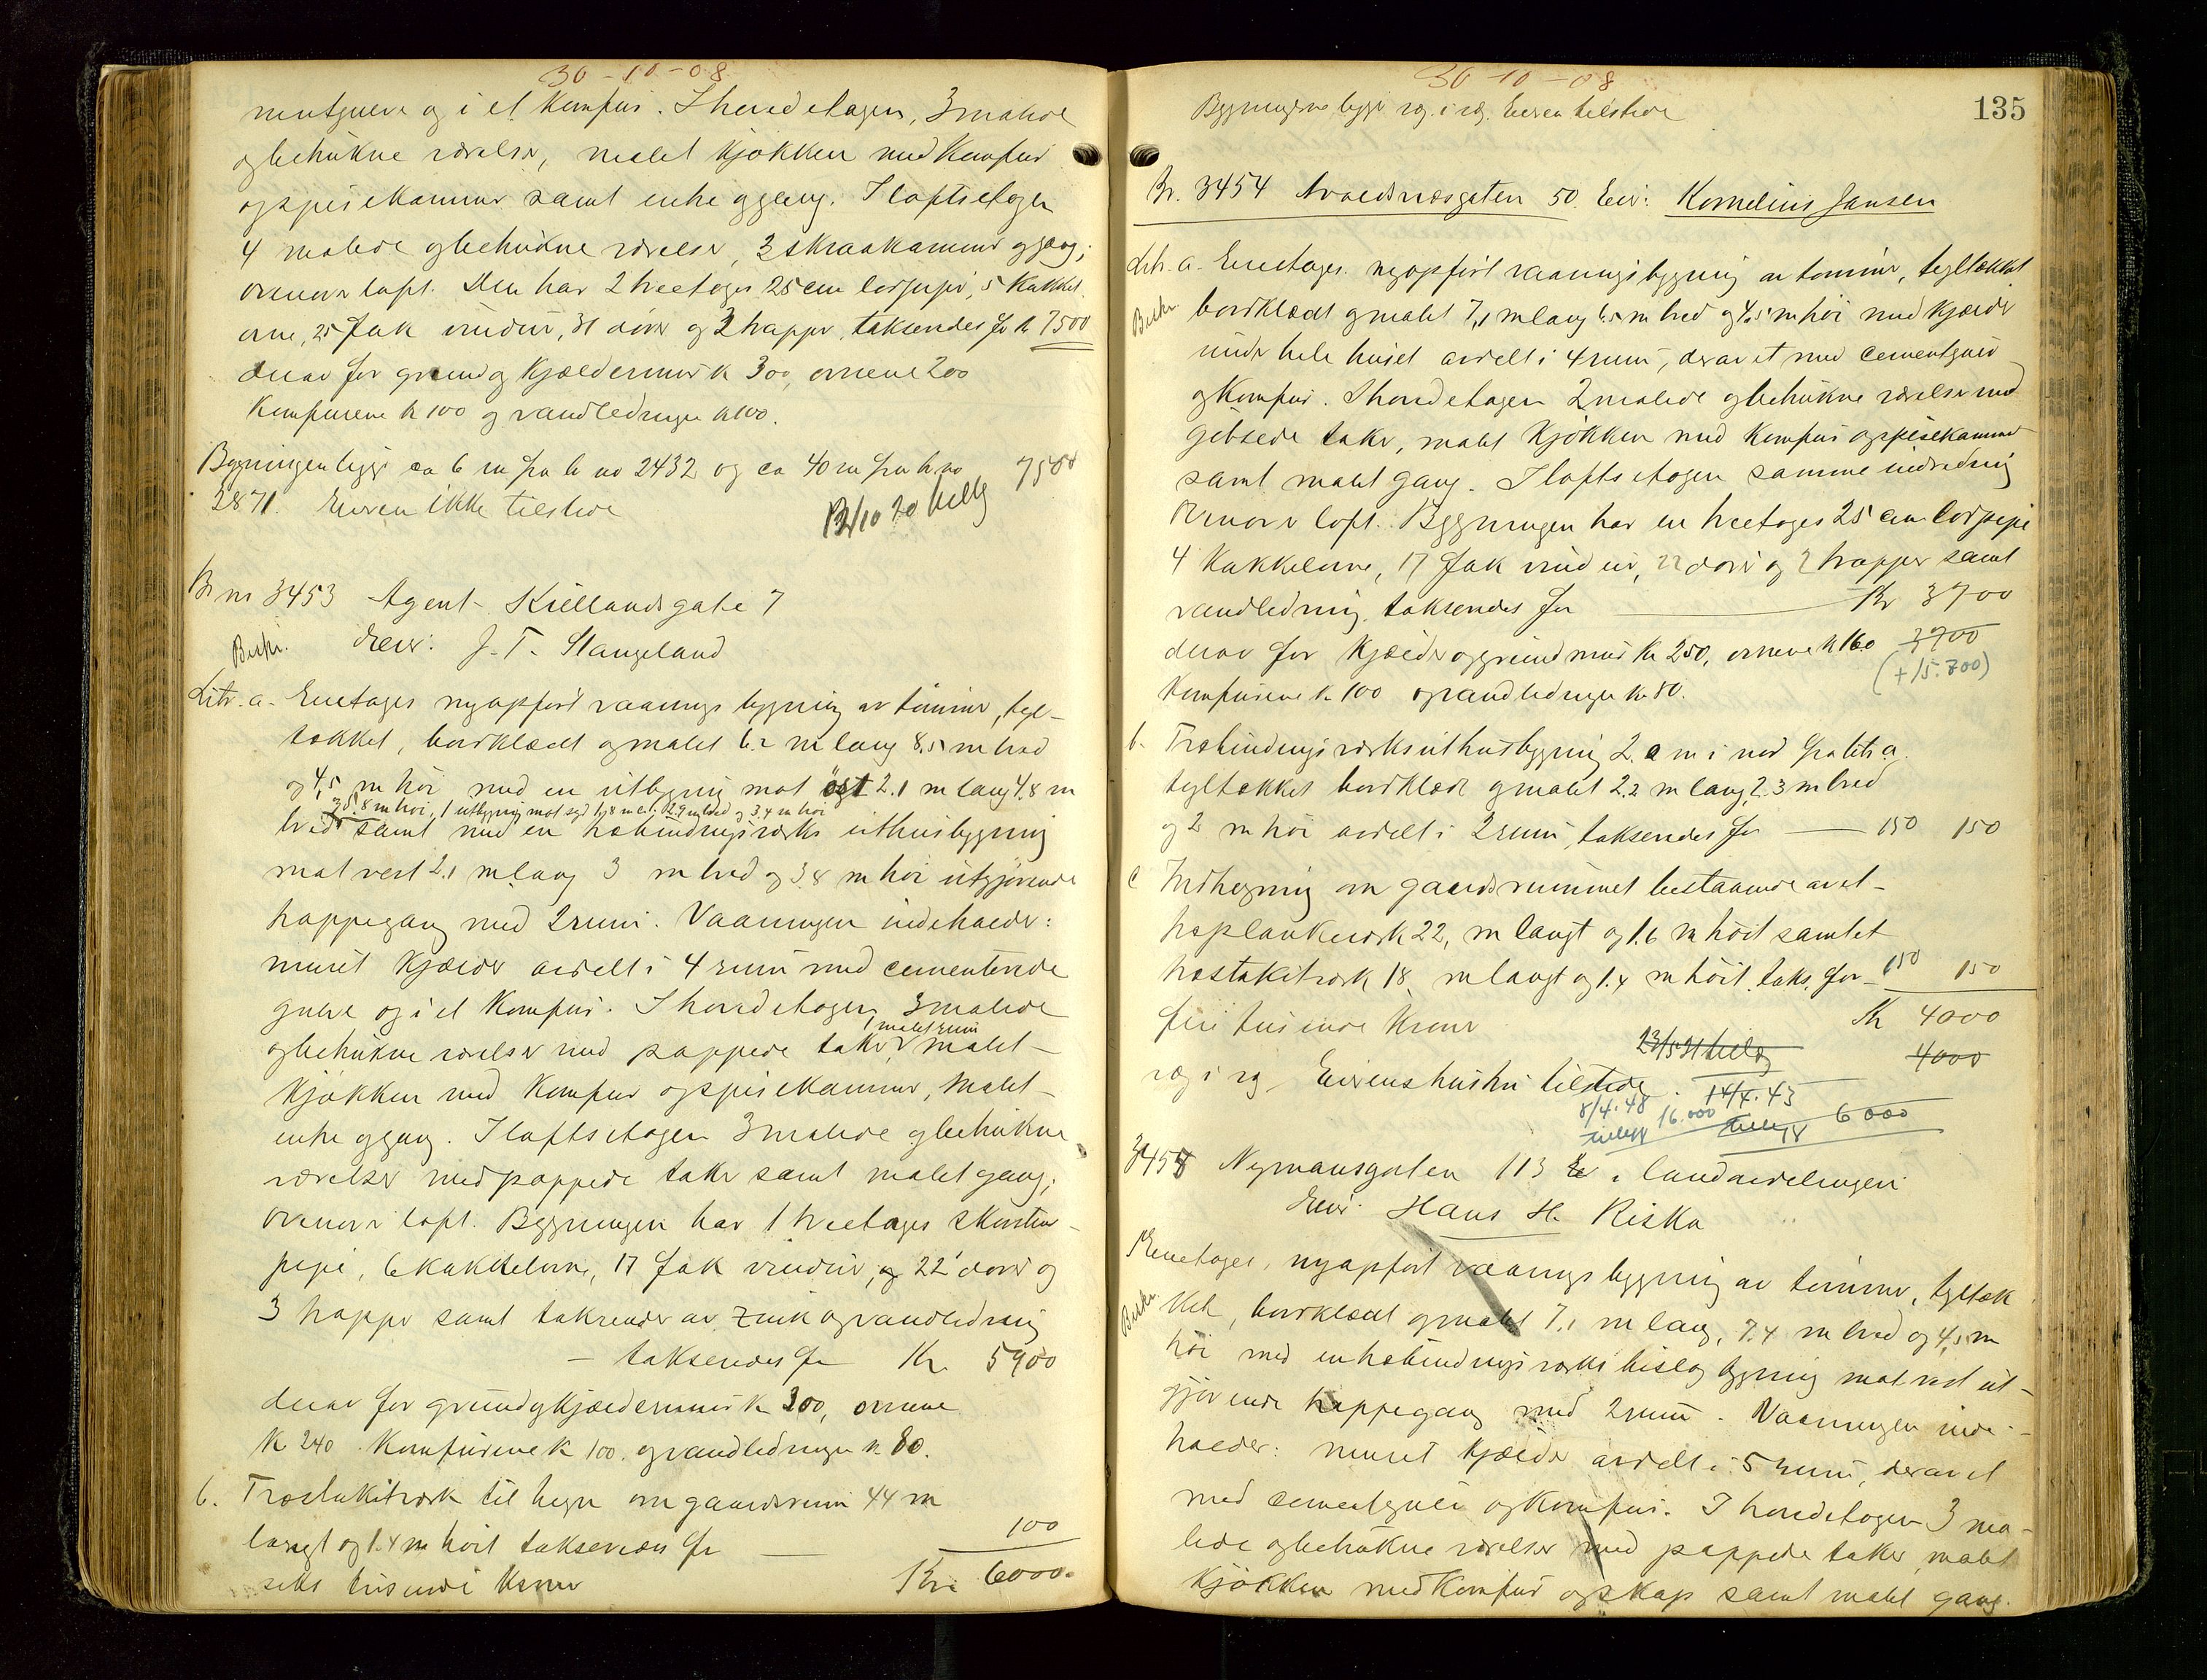 30-10-08
mentgulve og i et komfur. I hovedetagen, 3 malede
og betrukne værelser, malet kjøkken med komfur
og spisekammer samt entre og gang. I loftsetagen
4 malede og betrukne værelser, 3 skraakammer og gang;
ovenover loft. Den har 2 treetages 25 cm lodpiper, 5 kakkel-
ovne, 25 fak vinduer, 31 døre og 3 trapper, taksendes for kr 7500
derav for grund og kjældermur kr 300, ovnene 200
komfurene kr 100 og vandledningen kr 100.
Bygningen ligger ca 6 m fra br no 2432 og ca 40 m fra br no 7500
2871. Eieren ikke tilstede
Br nr 3453 Agent Kiellandsgate 7
Beskr. Eier: J. T. Stangeland
Litr. a. Enetages nyopført vaanings bygning av tømmer, tegl-
tækket, bordklædt og malet 6.2 m lang 8.5 m bred
og 4,5 m høi med en utbygning mot øst 2.1 m lang 4.8 m
og 5.8 m høi, 1 utbygning mot syd 1,8 m l. 2.9 m bred og 3.4 m høi
bred samt med en træbindingsværks uthusbygning
mot vest 2.1 m lang 3 m bred og 3.8 m høi utgjørende
trappegang med 2 rum. Vaaningen indeholder:
muret kjælder avdelt i 4 rum med cementerede
gulve og i et komfur. I hovedetagen 3 malede
1 malet rum
og betrukne værelser med pappede taker, malet
kjøkken med komfur og spisekammer, malet
entre og gang. I loftsetagen 3 malede og betrukne
værelser med pappede taker samt malet gang;
ovenover loft. Bygningen har 1 treetages skorsten-
pipe, 6 kakkelovne, 17 fak vinduer, og 22 dører og
3 trapper samt takrender av zink og vandledning
- taksendes for Kr. 5900
derav for grund og kjældermur kr 300, ovnene
kr 240 komfurene kr 100. og vandledningen kr 80.
b. Træstakitværk til hegn om gaardsrum 44 m
langt og 1.4 m høit taksendes for 100
seks tusinde kroner Kr. 6000.
30-10-08
Bygningerne ligger reg. i reg. Eieren tilstede
135
Br. 3454 Avaldsnesgaten 50. Eier: Kornelius Jansen
Litr. a. Enetages nyopført vaaningsbygning av tømmer, tegltækket
Beskr. bordklædt og malet 7,1 m lang 6.5 m bred og 4.5 m høi med kjælder
under hele huset avdelt i 4 rum, derav et med cementgulv
og komfur. I hovedetagen 2 malede og betrukne værelser med
gibsede taker, malet kjøkken med komfur og spisekammer
samt malet gang. I loftsetagen samme indredning
Ovenover loft. Bygningen har en treetages 25 cm lodpipe
4 kakkelovne, 17 fak vinduer, 22 dører og 2 trapper samt
vandledning, taksendes for Kr 3700
derav for kjælder og grundmur kr 250, ovnene kr 160 3700
komfurene kr 100 og vandledningen kr 80. (+15.700)
b. Træbindingsværksuthusbygning 2.0 m i nord fra litr a.
tegltækket bordklædt og malet 2.2 m lang, 2.3 m bred
og 2 m høi avdelt i 2 rum, taksendes for 150 150
c Indhegning om gaardsrummet bestaaende av et
træplankeværk 22, m langt og 1.6 m høit samt et
træstakitværk 18, m langt og 1.4 m høit. taks. for 150 150
fire tusinde kroner Kr 4000
4000
reg i reg Eierens hustru tilstede. 14/4. 43
8/4. 48 16.000 tillegg 6000
tillegg
3458 Nymansgaten 113 i landavdelingen
Eier: Hans H. Riska
Enetages, nyopført vaanings bygning av tømmer, tegltæk
Beskr. ket, bordklædt og malet 7,1 m lang, 7.4 m bred og 4,5 m
høi med en træbindingsværks bislag bygning mot vest ut-
gjørende trappegang med 2 rum. Vaaningen inde-
holder: muret kjælder avdelt i 5 rum, derav et
med cementgulv og komfur. I hovedetagen 3 ma-
lede og betrukne værelser med pappede taker, malet
kjøkken med komfur og skap samt malet gang.